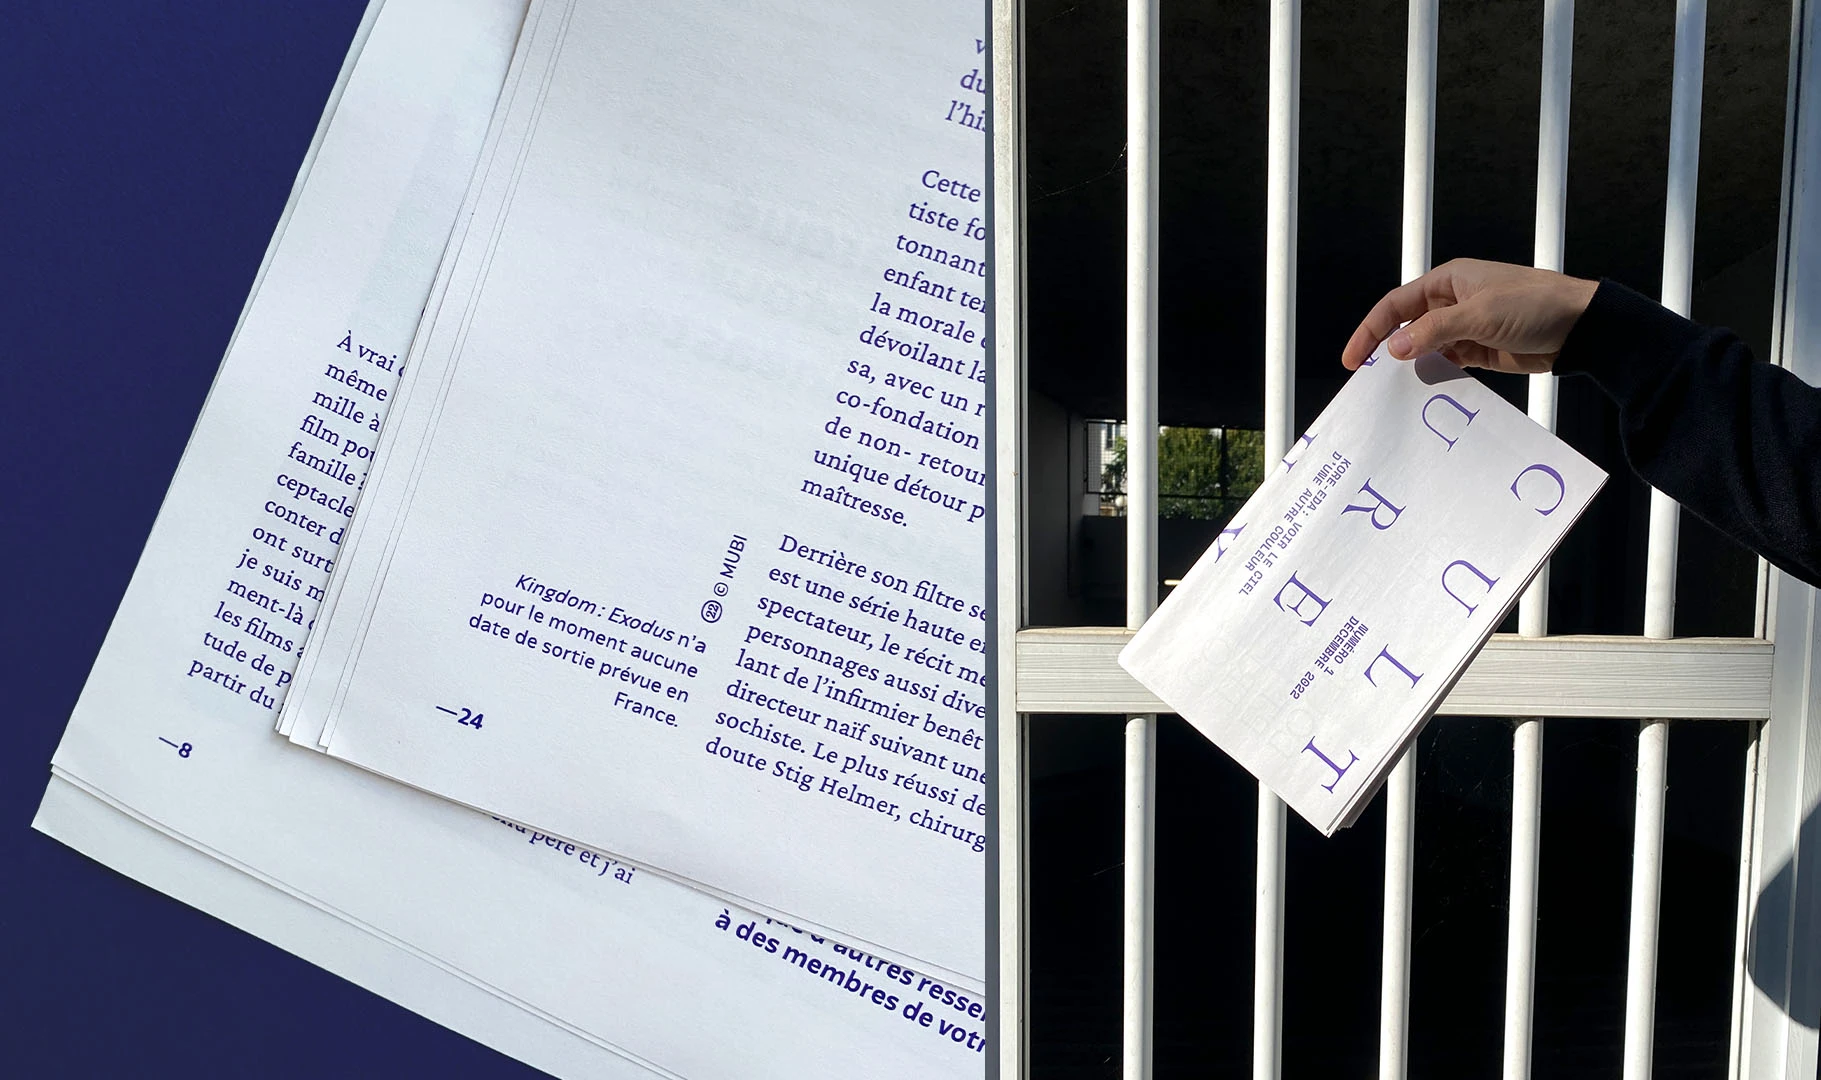 À vrai
même
mille à
film pou
famille :
ceptacle
conter d
ont surt
je suis m
ment-là
les films a
tude de p
partir du
—8
du
l'his
Cette
tiste fo
tonnant
enfant ter
la morale
dévoilant la
sa, avec un r
co-fondation
de non- retour
unique détour p
maîtresse.
Derrière son filtre se
est une série haute en
spectateur, le récit me
personnages aussi dive
lant de l'infirmier benêt
directeur naïf suivant une
sochiste. Le plus réussi de
doute Stig Helmer, chirurg
22 © MUBI
Kingdom : Exodus n'a
pour le moment aucune
date de sortie prévue en
France.
—24
père et j'ai
d'autres resse
à des membres de votr
CULT
URE
KORE-EDA : VOIR LE CIEL
D'UNE AUTRE COULEUR
NUMÉRO 1
DECEMBRE 2022